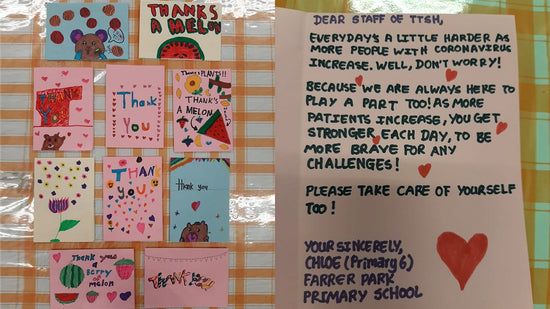 THANKS
A MELON
THANK
YOU
Thank
You
PLANTS!!
THANK'S
A MELON
THANK
you!
thank you
Thank you
a berry
melon
THANK YOU
DEAR STAFF OF TTSH,
EVERYDAY'S A LITTLE HARDER AS
MORE PEOPLE WITH CORONAVIRUS
INCREASE. WELL, DON'T WORRY!
BECAUSE WE ARE ALWAYS HERE TO
PLAY A PART TOO! AS MORE
PATIENTS INCREASE, YOU GET
STRONGER EACH DAY, TO BE
MORE BRAVE FOR ANY
CHALLENGES!
PLEASE TAKE CARE OF YOURSELF
TOO!
YOUR SINCERELY,
CHLOE (Primary 6)
FARRER PARK
PRIMARY SCHOOL